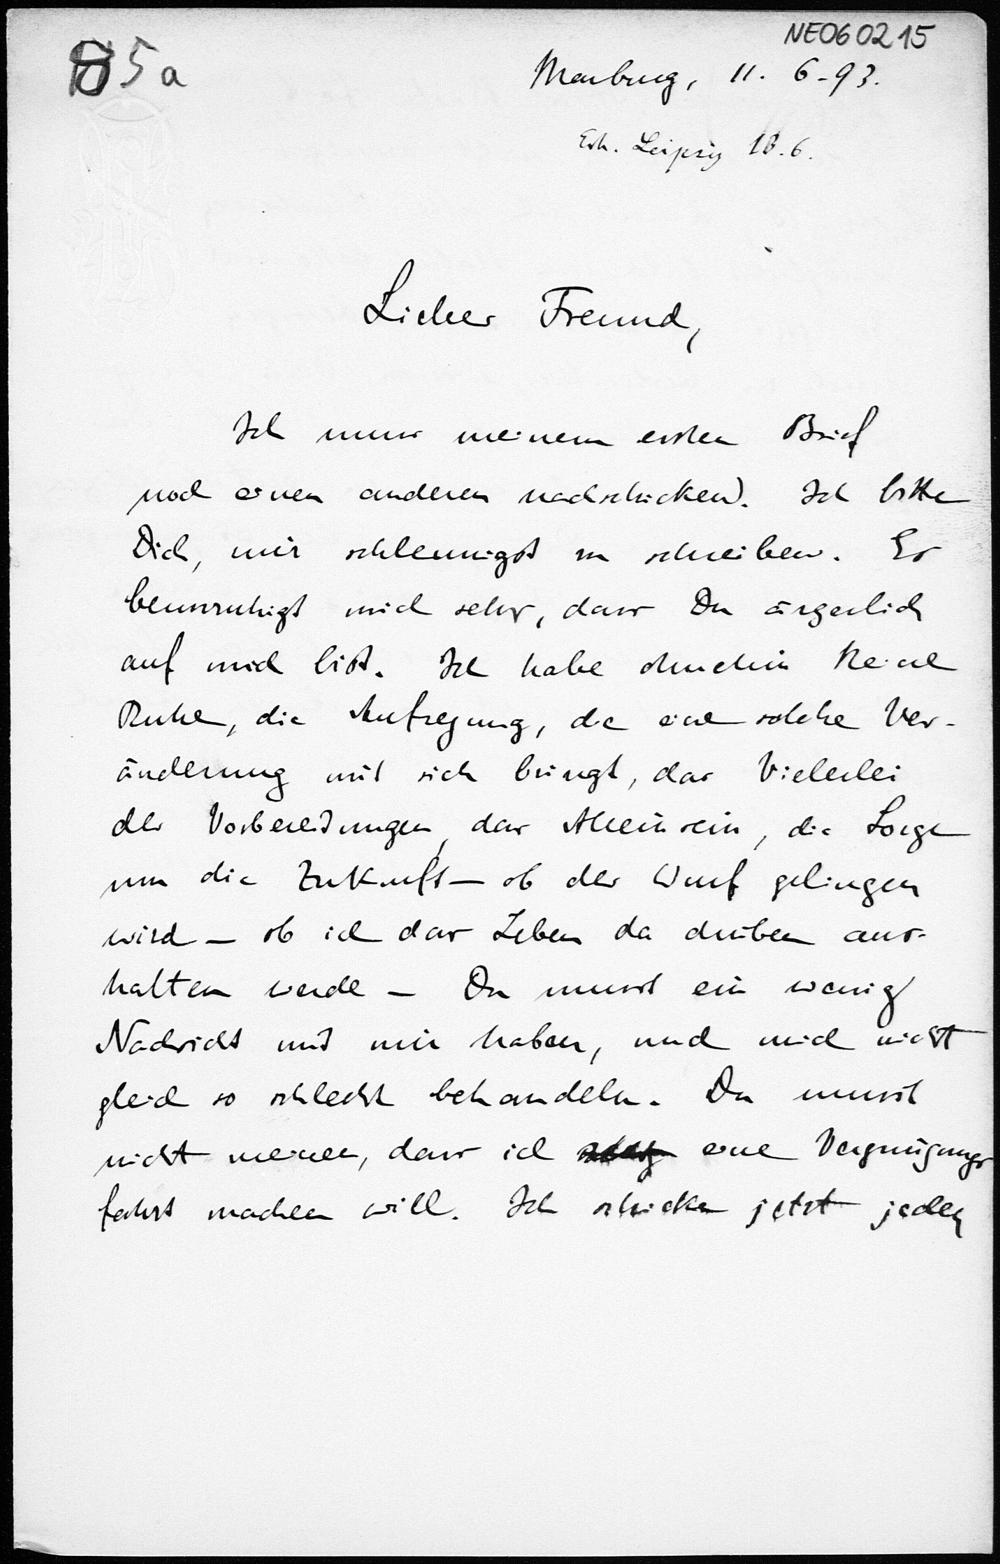 NE060215
5a
Marburg, 11. 6. 93.
Erh. Leipzig 18.6.
Lieber Freund,
Ich muss meinem ersten Brief
noch einen anderen nachschicken. Ich bitte
Dich, mir schleunigst zu schreiben. Es
beunruhigt mich sehr, dass Du ärgerlich
auf mich bist. Ich habe ohnehin keine
Ruhe, die Aufregung, die eine solche Ver-
änderung mit sich bringt, das Vielerlei
der Vorbereitungen, das Alleinsein, die Sorge
um die Zukunft – ob der Wurf gelingen
wird – ob ich das Leben da drüben aus-
halten werde – Du musst ein wenig
Nachsicht mit mir haben, und mich nicht
gleich so schlecht behandeln. Du musst
nicht meinen, dass ich eine Vergnügungs
fahrt machen will. Ich schicke jetzt jeden